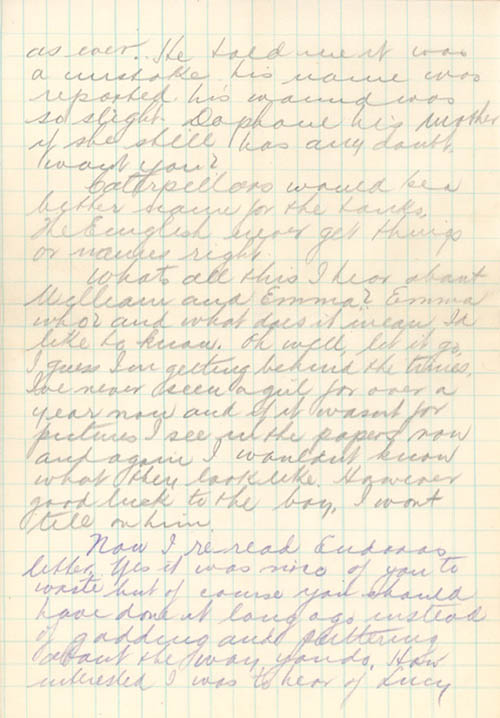 as ever. He told me it was
a mistake his name was
reported his wound was
so slight. Daphone his Mother
if she still has any doubt,
wont you?
Caterpillars would be a
better name for the tanks.
The English never get things
or names right.
Whats all this I hear about
William and Emma? Emma
who? and what does it mean, Id
like to know. Oh well, let it go,
I guess Im getting behind the times.
Ive never seen a girl for over a
year now and if it wasnt for
pictures I see in the papers now
and again I wouldnt know
what they look like. However
good luck to the boy, I wont
tell on him.
Now I re-read
letter. Yes it was nice of you to
write but of course you should
have done it long ago instead
of gadding and
about the way you do. How
interested I was to hear of Lucy